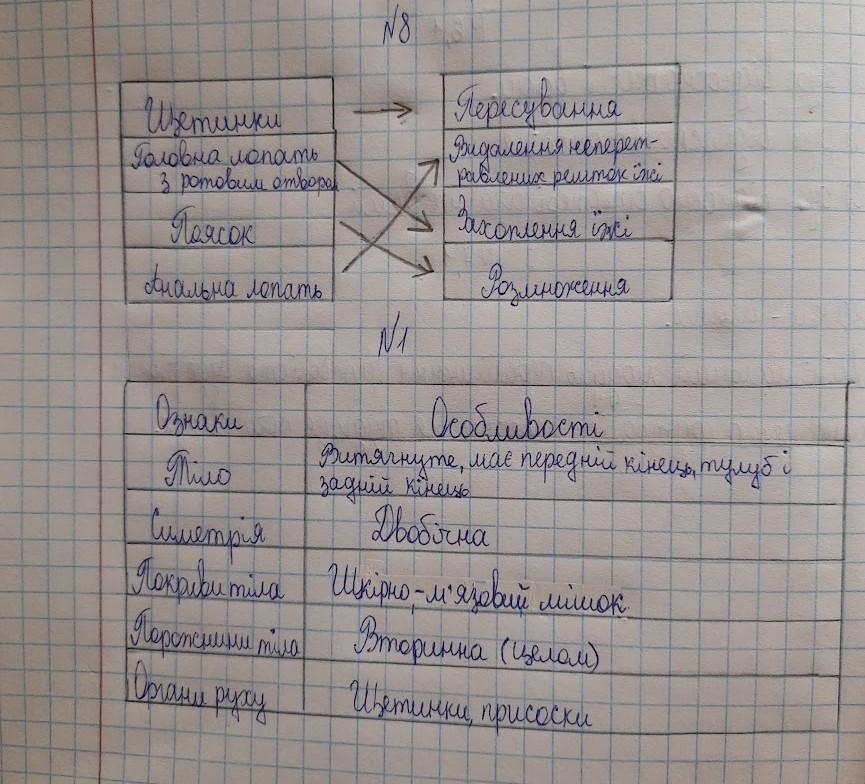 №8
Щетинки
Пересування
Головна лопать
з ротовим отвором
Видалення неперет-
равлених решток їжі
Поясок
Захоплення їжі
Анальна лопать
Розмноження
№1
Ознаки
Особливості
Тіло
Витягнуте, має передній кінець, тулуб і
задній кінець
Симетрія
Двобічна
Покриви тіла
Шкірно-м'язовий мішок
Порожнини тіла
Вторинна (целом)
Органи руху
Щетинки, присоски